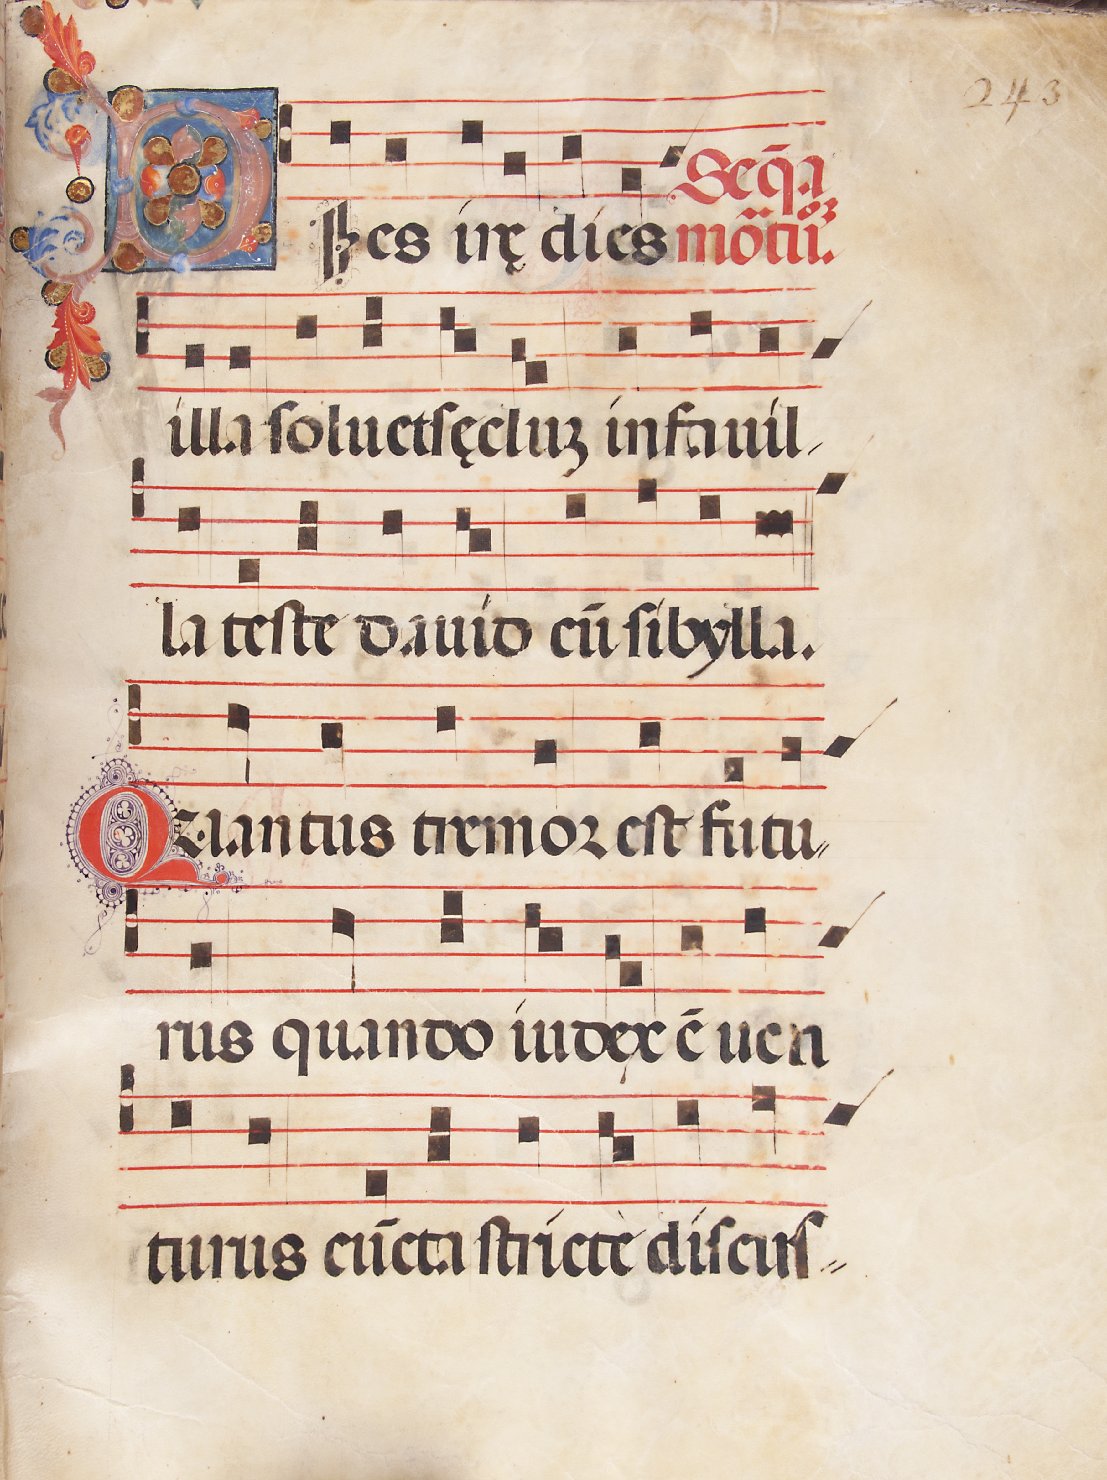 243
Seq̄a
DIes irę dies mōtuū.
illa soluet sęcluꝫ in fauil-
la teste dauid cū sibylla.
Quantus tremor est futu-
rus quando iudex ē uen
turus cūcta stricte discus-